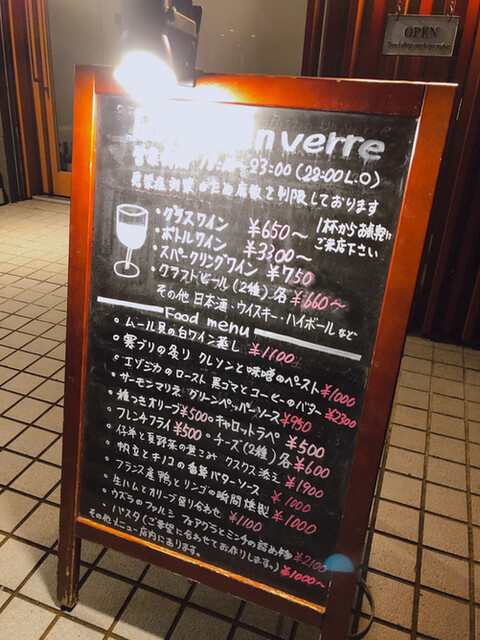 OPEN
n verre
23:00 (22:00 L.O)
感染症対策のため席数を制限しております
・グラスワイン ¥650〜
・ボトルワイン ¥3300〜
・スパークリングワイン ¥750
・クラフトビール(2種)各¥660〜
1杯からお気軽に
ご来店下さい
その他 日本酒・ウイスキー・ハイボールなど
Food menu
○ムール貝の白ワイン蒸し ¥1100
○寒ブリの炙り クレソンと味噌のペースト¥1000
○エゾジカのロースト 黒ゴマとコーヒーのバター ¥2300
○サーモンマリネ グリーンペッパーソース¥950
○種つきオリーブ¥500○キャロットラペ ¥500
○フレンチフライ¥500○チーズ(2種)各¥600
○仔羊と夏野菜の煮こみ クスクス添え ¥1900
○帆立とキノコの香草バターソース ¥1000
○フランス産鴨とリンゴの瞬間燻製 ¥1000
○生ハムとオリーブ盛り合わせ ¥1100
○ウズラのファルシ フォアグラとミンチの詰め物 ¥2100
○パスタ(ご希望に合わせてお作りします。) ¥1000〜
その他メニュー店内にあります。